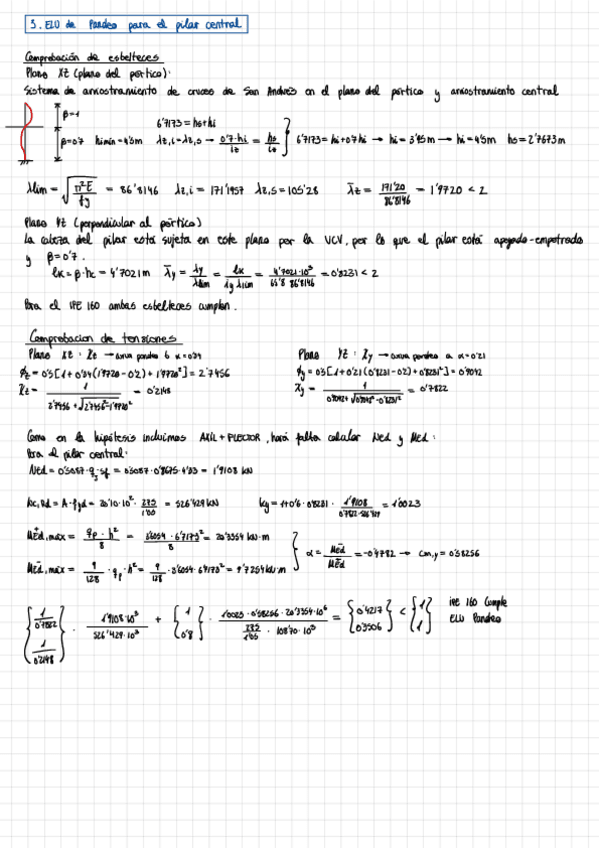 3. ELU de Pandeo para el pilar central
Comprobación de esbelteces
Plano XZ (plano del pórtico):
Sistema de arriostramiento de cruces de San Andrés en el plano del pórtico y arriostramiento central
β=1
6'7173 = hs+hi
β=0'7 himin = 4'5m λz,i = λz,s → 0'7·hi / iz = hs / iz } 6'7173 = hi+0'7hi → hi = 3'95m → hi = 4'5m hs = 2'7673m
λlim = √(π²E / fy) = 86'8146 λz,i = 171'1957 λz,s = 105'28 λ̄z = 171'20 / 86'8146 = 1'9720 < 2
Plano YZ (perpendicular al pórtico)
La cabeza del pilar está sujeta en este plano por la VCV, por lo que el pilar está apoyado-empotrado
y β=0'7.
lk = β·hc = 4'7021m λ̄y = λy / λlim = lk / iy λlim = 4'7021·10³ / 65'8 86'8146 = 0'8231 < 2
Para el IPE 160 ambas esbelteces cumplen.
Comprobacion de tensiones
Plano XZ: χz → curva pandeo b α=0'34
Plano YZ: χy → curva pandeo a α=0'21
ϕz = 0'5[1+0'34(1'9720-0'2)+1'9720²] = 2'7456
ϕy = 0'5[1+0'21(0'8231-0'2)+0'8231²] = 0'9042
χz = 1 / 2'7456+√2'7456²-1'9720² = 0'2148
χy = 1 / 0'9042+√0'9042²-0'8231² = 0'7822
Como en la hipótesis incluimos AXIL + FLECTOR, hará falta calcular Ned y Med:
Para el pilar central:
Ned = 0'5087·q·sf = 0'5087·0'8675·4'33 = 1'9108 kN
Nc,Rd = A·fyd = 20'10·10²· 275 / 1'05 = 526'429 kN
ky = 1+0'6·0'8231· 1'9108 / 0'7822·526'429 = 1'0023
M⁺Ed,max = qp·h² / 8 = 3'6054·6'7173² / 8 = 20'3354 kN·m
M⁻Ed,max = 9 / 128 ·qp·h² = 9 / 128 ·3'6054·6'7173² = 9'7254 kN·m
α = M⁻Ed / M⁺Ed = -0'4782 → Cm,y = 0'58256
{ 1 / 0'7822 1 / 0'2148 } · 1'9108·10³ / 526'429·10³ + { 1 0'8 } · 1'0023·0'58256·20'3354·10⁶ / 275 / 1'05 · 108'70·10³ = { 0'4217 0'3506 } < { 1 1 }
IPE 160 Cumple
ELU Pandeo